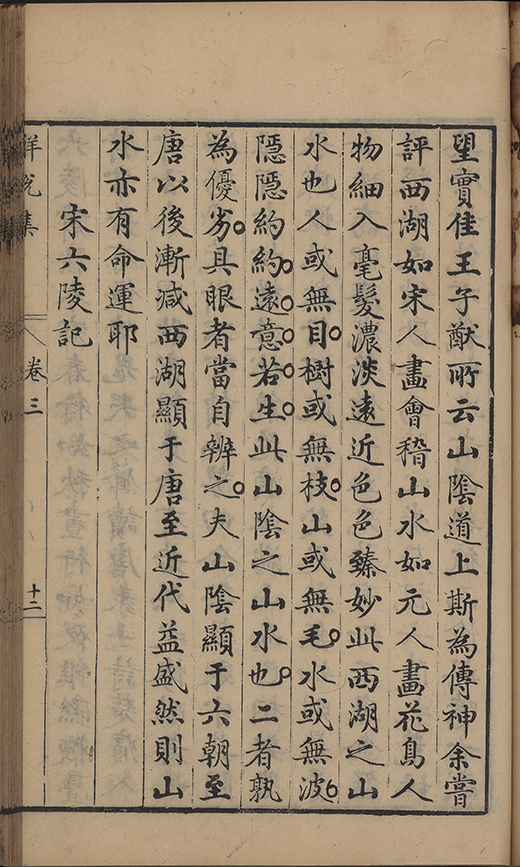 望實佳王子猷所云山陰道上斯為傳神余嘗
評西湖如宋人畫會稽山水如元人畫花鳥人
物細入毫髮濃淡遠近色色臻妙此西湖之山
水也人或無目樹或無枝山或無毛水或無波
隱隱約約遠意若生此山陰之山水也二者孰
為優劣具眼者當自辨之夫山陰顯于六朝至
唐以後漸减西湖顯于唐至近代益盛然則山
水亦有命運耶
宋六陵記
卷三
十二